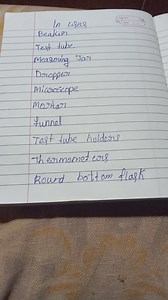 In uses
Beaker
Test tube
Measuring Jar
Dropper
Microscope
Mortar
funnel
Test tube holders
Thermometers
Round bottom flask